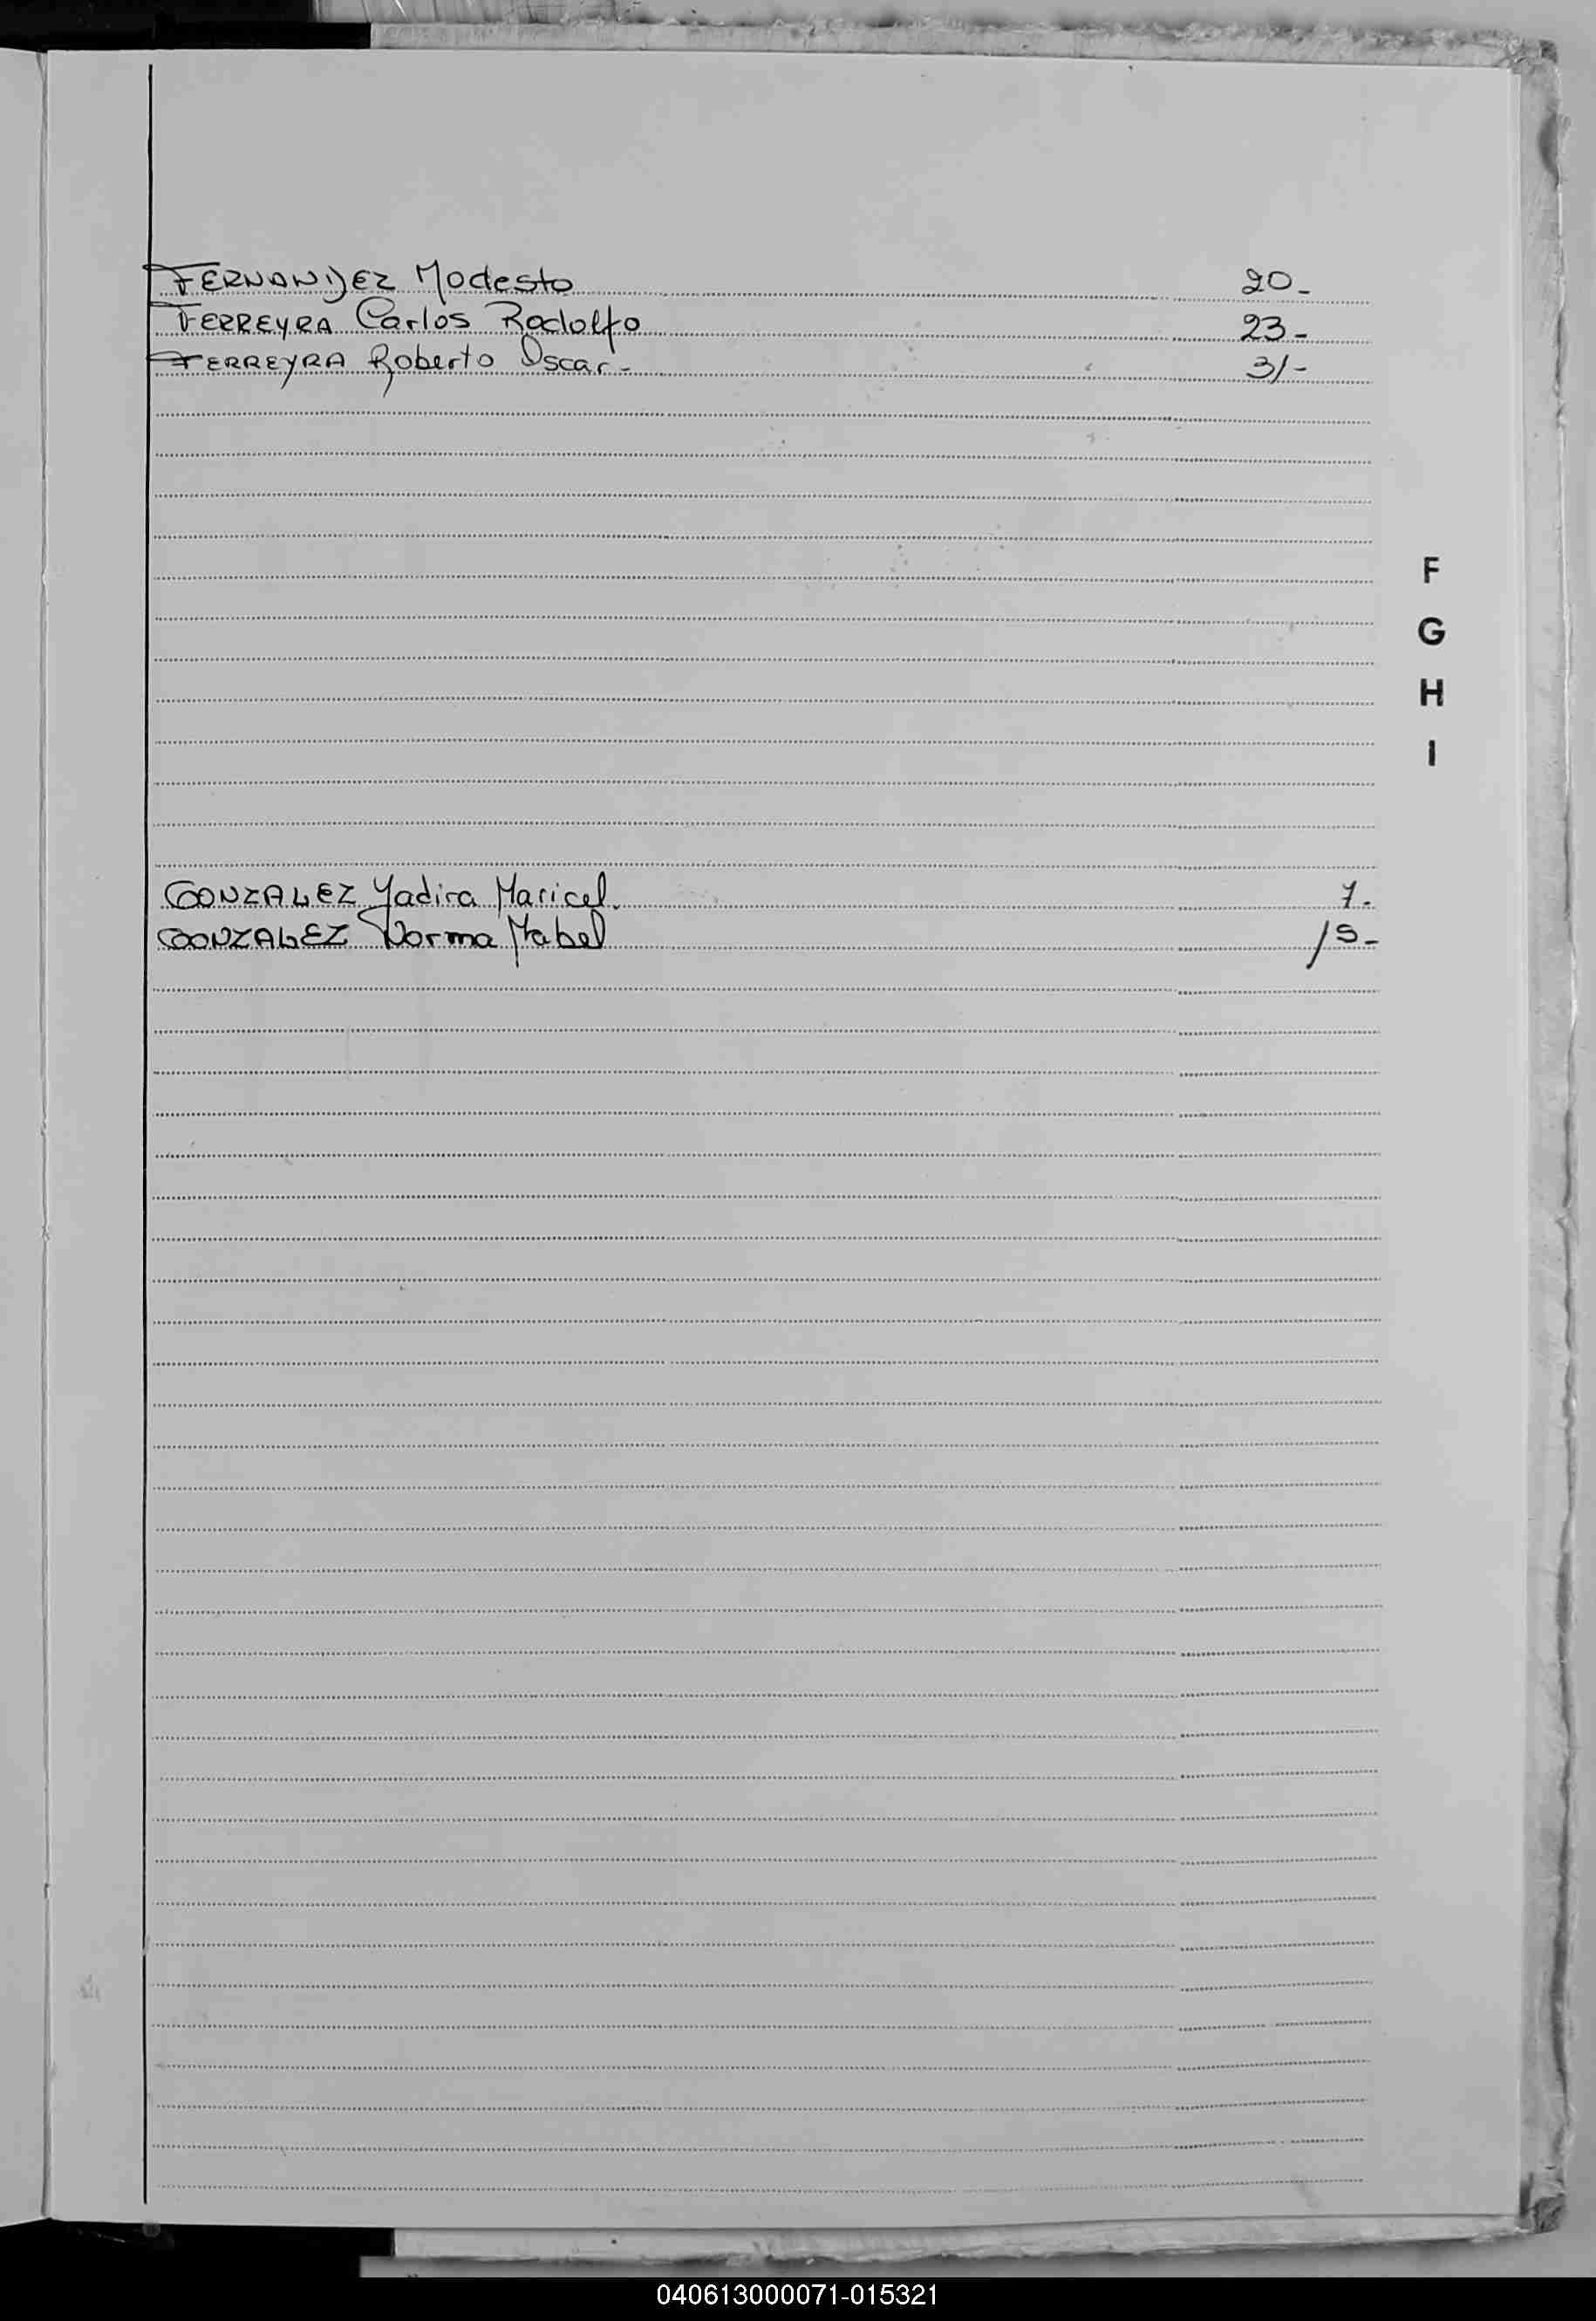 FERNANDEZ Modesto 20-
FERREYRA Carlos Rodolfo 23-
FERREYRA Roberto Oscar- 31-
F
G
H
I
GONZALEZ Yadira Maricel. 7.
GONZALEZ Norma Mabel 15-
040613000071-015321